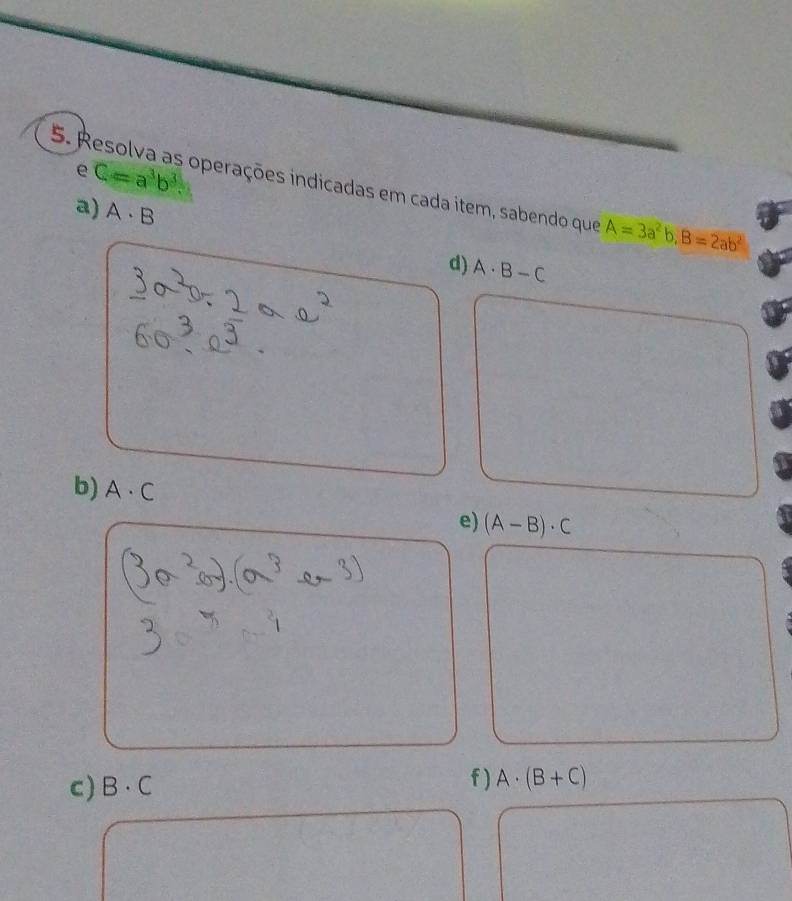 5. Resolva as operações indicadas em cada item, sabendo que A = 3a²b, B = 2ab²
e C = a³b³.
a) A · B
3a²b. 2 a b²
6a³. b³.
b) A · C
(3a²b).(a³ b³)
3
c) B · C
d) A · B – C
e) (A – B) · C
f) A · (B + C)